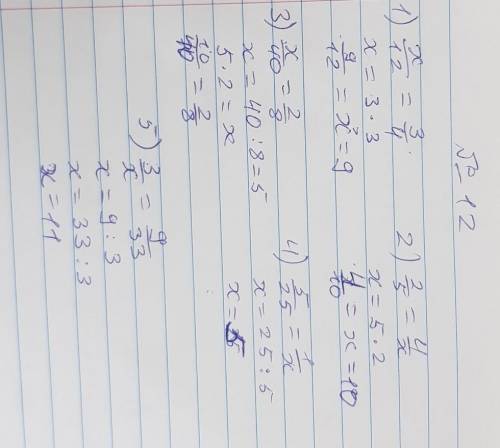 № 12
1) x/12 = 3/4
x = 3 · 3
9/12 = x = 9
2) 2/5 = 4/x
x = 5 · 2
4/10 = x = 10
3) x/40 = 2/8
x = 40 : 8 = 5
5 · 2 = x
10/40 = 2/8
4) 5/25 = 1/x
x = 25 : 5
x = 5
5) 3/x = 9/33
x = 9 : 3
x = 33 : 3
x = 11